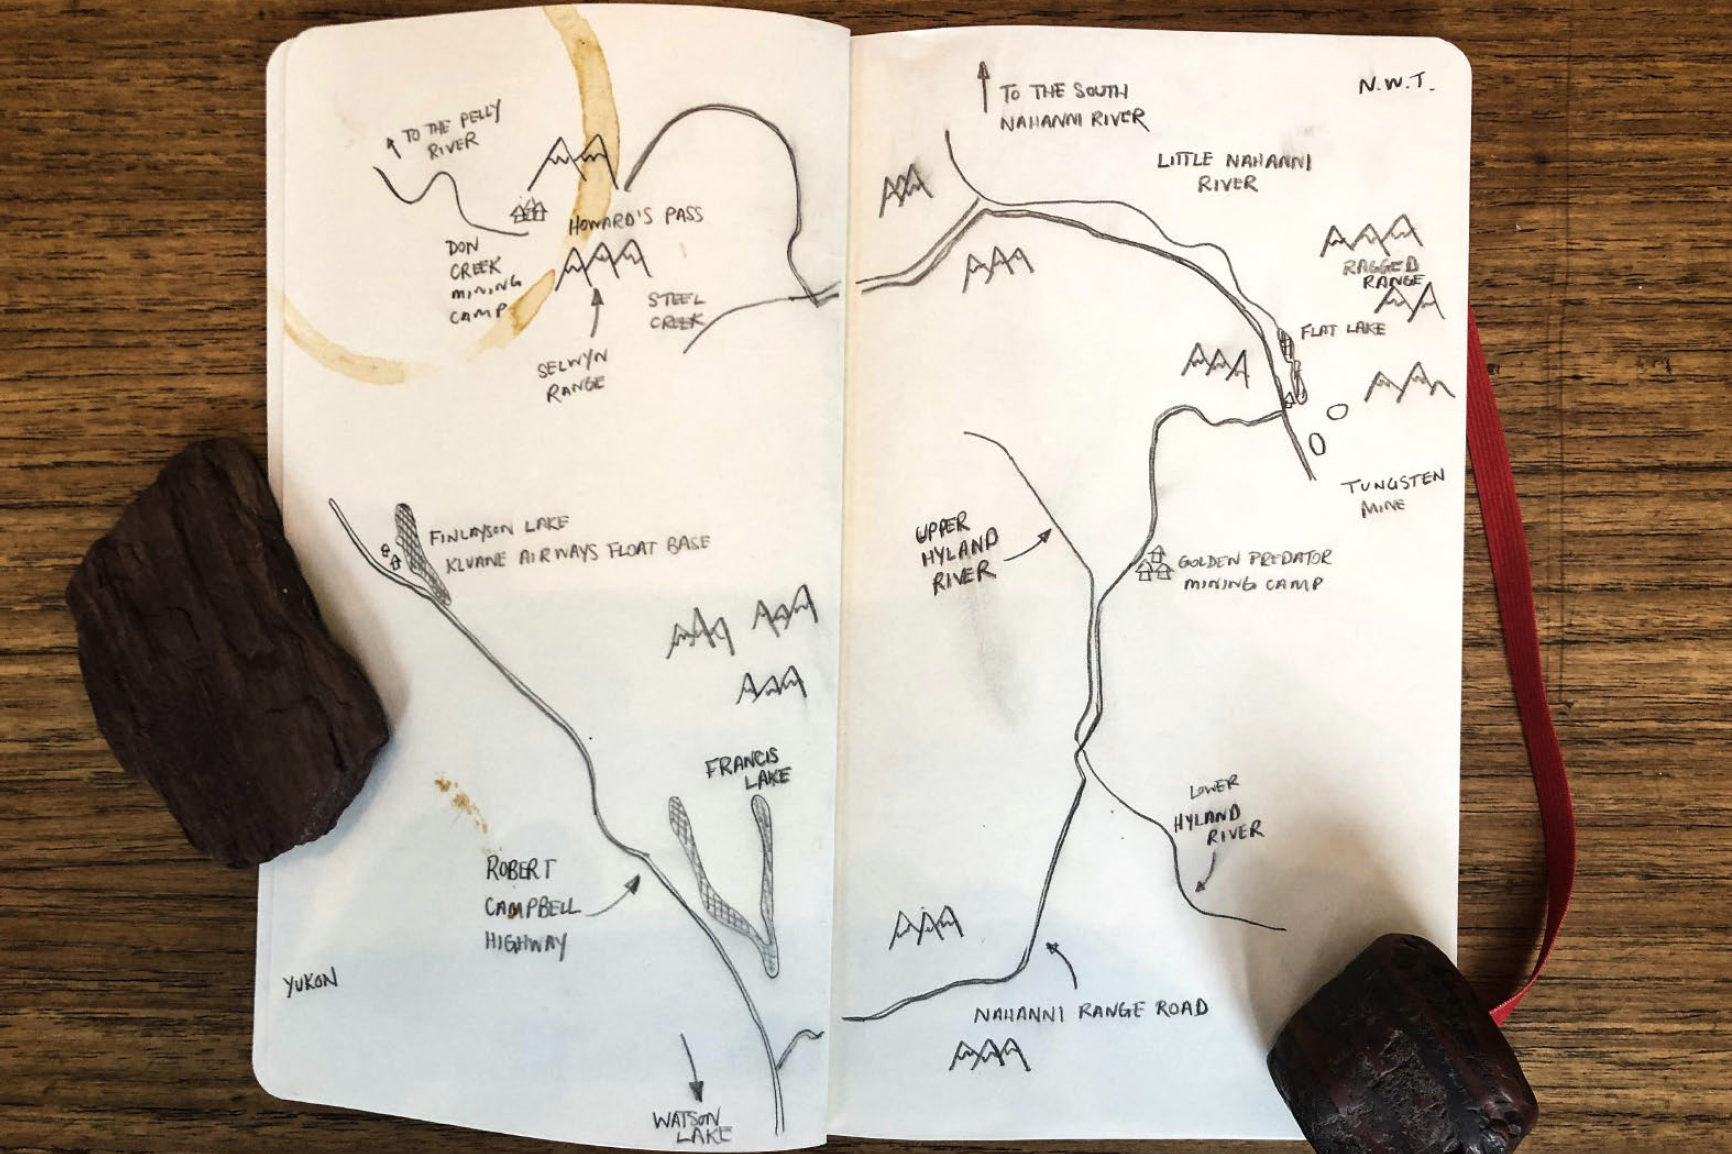 TO THE PELLY
RIVER
DON
CREEK
MINING
CAMP
HOWARD'S PASS
STEEL
CREEK
SELWYN
RANGE
FINLAYSON LAKE
KLUANE AIRWAYS FLOAT BASE
FRANCIS
LAKE
ROBERT
CAMPBELL
HIGHWAY
YUKON
WATSON
LAKE
TO THE SOUTH
NAHANNI RIVER
N.W.T.
LITTLE NAHANNI
RIVER
RAGGED
RANGE
FLAT LAKE
TUNGSTEN
MINE
UPPER
HYLAND
RIVER
GOLDEN PREDATOR
MINING CAMP
LOWER
HYLAND
RIVER
NAHANNI RANGE ROAD